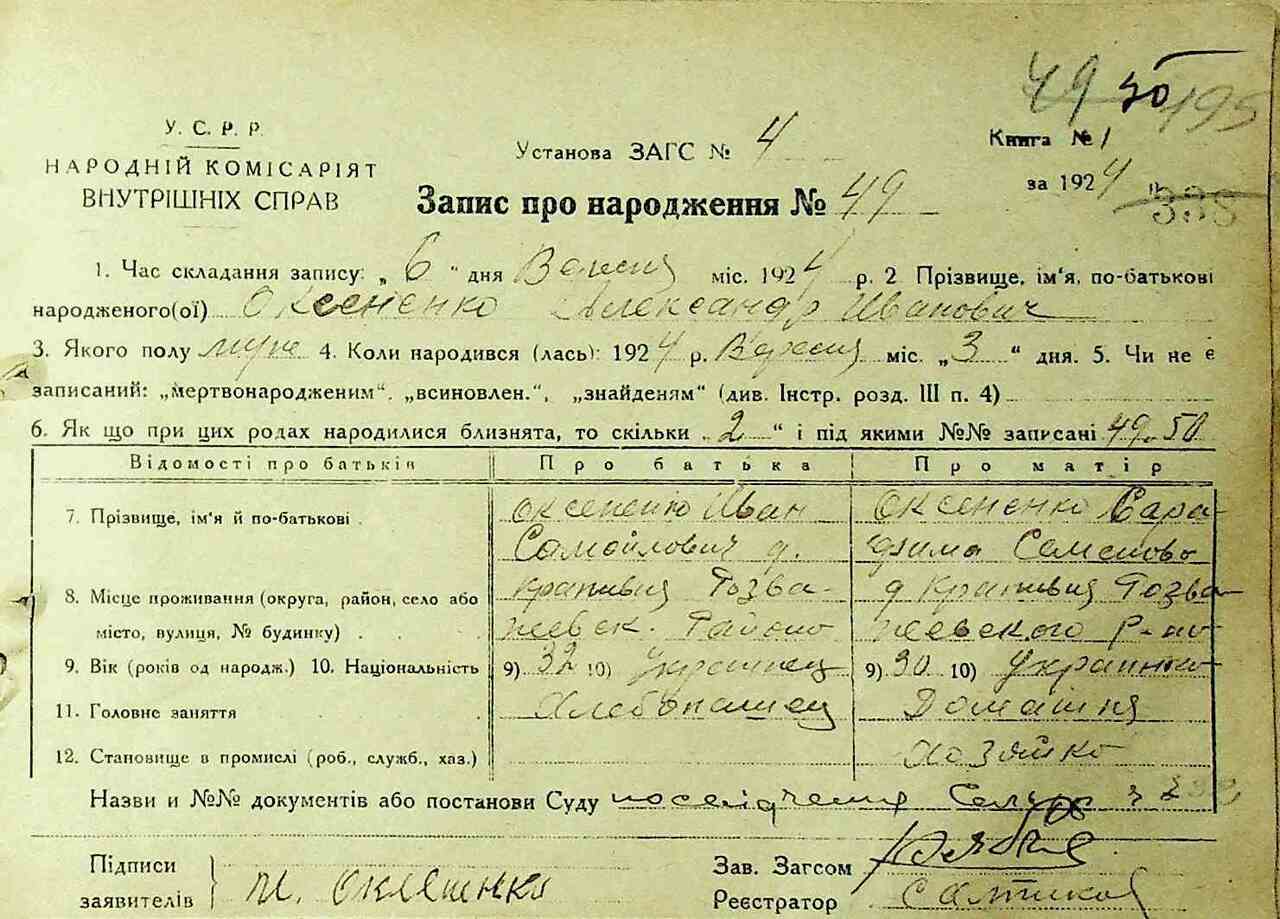 49 50 195
У. С. Р. Р.
НАРОДНІЙ КОМІСАРІЯТ
ВНУТРІШНІХ СПРАВ
Установа ЗАГС № 4
Книга № 1
за 1924
Запис про народження № 49
1. Час складання запису: „6“ дня Вересня міс. 1924 р. 2 Прізвище, ім'я, по-батькові
народженого(ої) Оксененко Александр Иванович
3. Якого полу муж 4. Коли народився (лась): 1924 р. Вересня міс. „3“ дня. 5. Чи не є
записаний: „мертвонародженим“. „всиновлен.“, „знайденям“ (див. Інстр. розд. III п. 4)
6. Як що при цих родах народилися близнята, то скільки „2“ і під якими №№ записані 49-50
Відомості про батьків Про батька Про матір
7. Прізвище, ім'я й по-батькові Оксененко Иван Самойлович Оксененко
8. Місце проживання (округа, район, село або
місто, вулиця, № будинку)
9. Вік (років од народж.) 10. Національність 9) 32 10) Украинец 9) 30 10) Украинка
11. Головне заняття Хлебопашец Домашня
12. Становище в промислі (роб., служб., хаз.) хозяйка
Назви и №№ документів або постанови Суду посвідчення
Підписи
заявителів И.
Зав. Загсом
Реєстратор